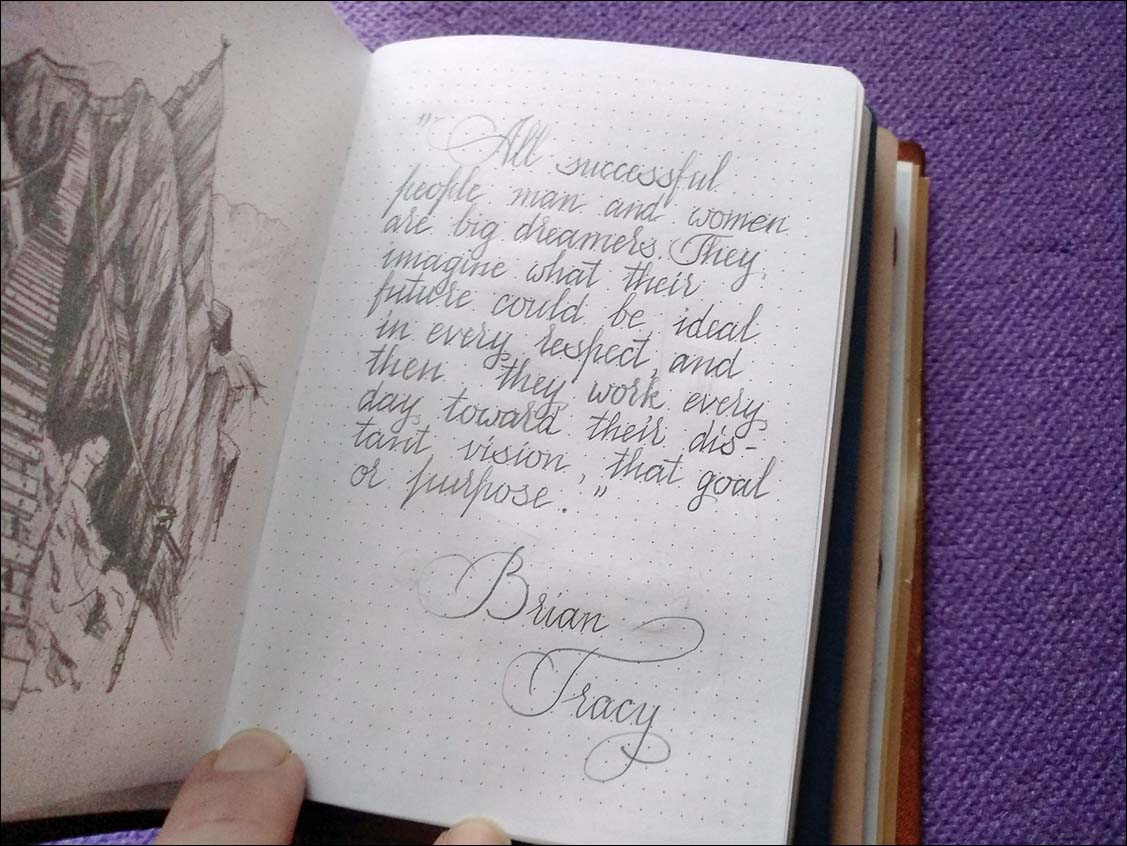 "All successful
people man and women
are big dreamers. They
imagine what their
future could be, ideal
in every respect, and
then they work every
day toward their dis-
tant vision, that goal
or purpose."
Brian
Tracy